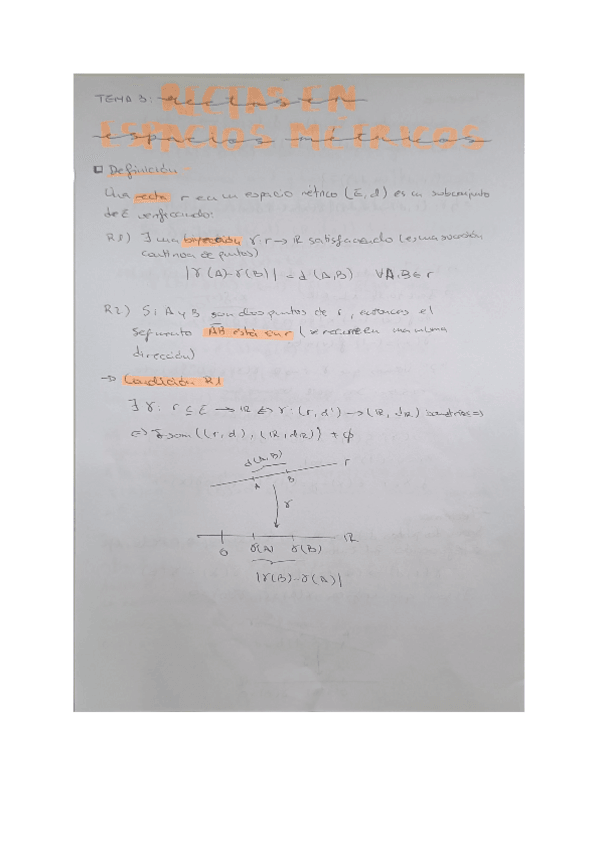 TEMA 3: RECTAS EN
ESPACIOS MÉTRICOS
Definición
Una recta r en un espacio métrico (E, d) es un subconjunto
de E verificando:
R1) ∃ una biyección γ: r → ℝ satisfaciendo (es una sucesión
continua de puntos)
|γ(A)-γ(B)| = d(A,B) ∀A,B∈r
R2) Si A y B son dos puntos de r, entonces el
segmento AB está en r (se recorren una misma
dirección)
→ Condición R1
∃ γ: r ⊆ E → ℝ ⇔ γ: (r, d') → (ℝ, dℝ) isometría ⇔
⇔ Isom((r, d), (ℝ, dℝ)) ≠ ∅
d(A,B)
r
A B
γ
ℝ
0 γ(A) γ(B)
|γ(B)-γ(A)|